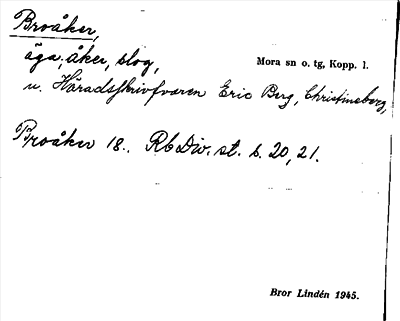 Broåker,
äga, åker, slog,
Mora sn o. tg, Kopp. l.
u. Häradsskrifvaren Eric Berg, Christineberg,
Broåker 18.. Rb Div. st. s. 20, 21.
Bror Lindén 1945.